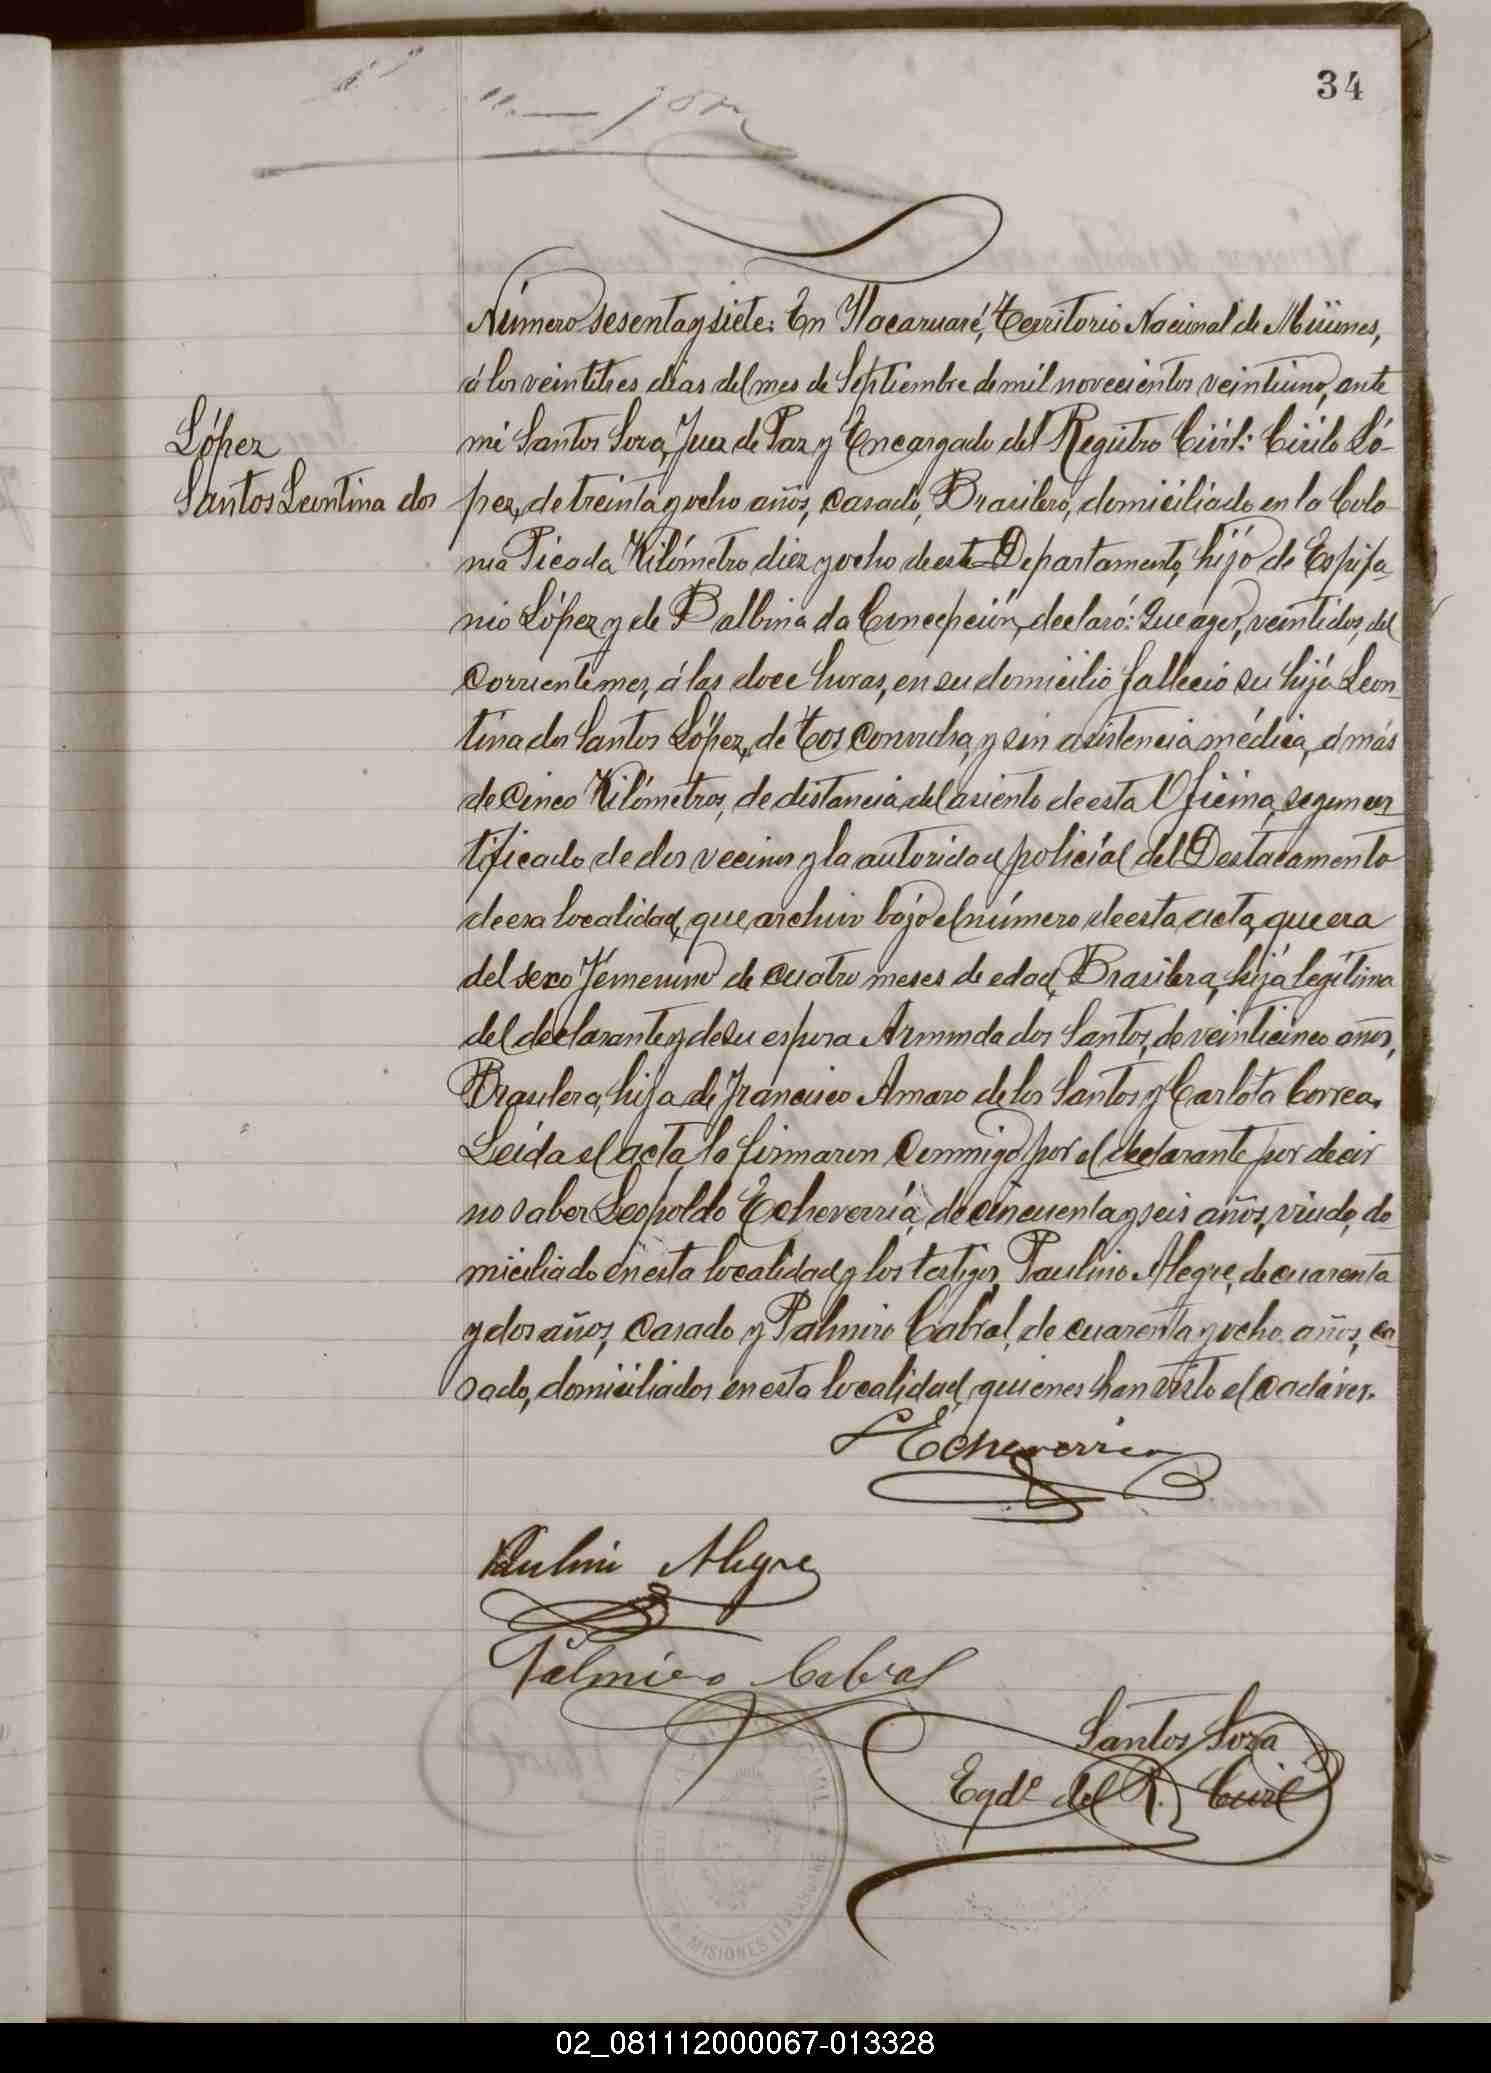 34
Número sesenta y siete: En Itacaruaré, Territorio Nacional de Misiones,
á los veintitres dias del mes de Septiembre de mil novecientos veintiuno, ante
López
mi Santos Soza, Juez de Paz y Encargado del Registro Civil: Cirilo Ló-
Santos Leontina dos
pez, de treinta y ocho años, casado, Brasilero, domiciliado en la Colo-
nia Picada Kilómetro diez y ocho de este Departamento, hijo de Espifa-
nio López y de Balbina da Concepción, declaró: Que ayer, veintidos, del
corriente mes, á las doce horas, en su domicilio falleció su hija Leon-
tina dos Santos López, de tos convulsa, y sin asistencia médica, á más
de cinco Kilómetros, de distancia del asiento de esta Oficina, segun cer
tificado de dos vecinos y la autoridad policial del Destacamento
de esa localidad, que archivo bajo el número de esta acta, que era
del sexo femenino de cuatro meses de edad, Brasilera, hija legítima
del declarante y de su esposa Arminda dos Santos, de veinticinco años,
Brasilera, hija de Francisco Amaro de los Santos y Carlota Correa.
Leida el acta la firmaron conmigo por el declarante por decir
no saber Leopoldo Echeverría, de cincuenta y seis años, viudo, do-
miciliado en esta localidad y los testigos, Paulino Alegre, de cuarenta
y dos años, casado y Palmiro Cabral, de cuarenta y ocho años, ca-
sado, domiciliados en esta localidad, quienes han visto el cadáver.
L Echeverria
Paulino Alegre
Palmiro Cabral
Santos Soza
Egdo del R. Civil
MISIONES
02_081112000067-013328